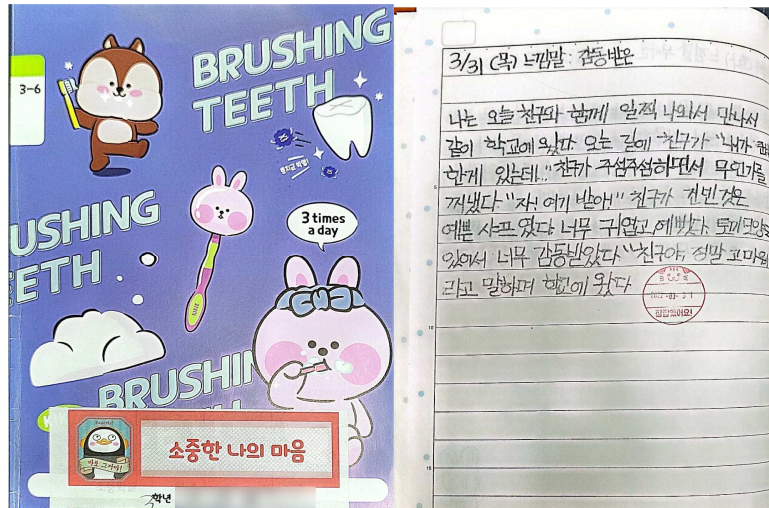 3-6
BRUSHING
TEETH
USHING
EETH
3 times
a day
BRUSHIN
TEETH
소중한 나의 마음
3학년
3/31 (목) 느낌말: 감동받은
나는 오늘 친구와 함께 일찍 나와서 만나서
같이 학교에 왔다 오는 길에 친구가 "내가
한게 있는데.." 친구가 주섬주섬하면서 무언가를
꺼냈다 "자! 여기 받아!" 친구가 건넨 것은
예쁜 샤프였다 너무 귀엽고, 예뻤다. 토끼모양도
있어서 너무 감동받았다 "친구야, 정말 고마워"
라고 말하며 학교에 왔다
참잘했어요!